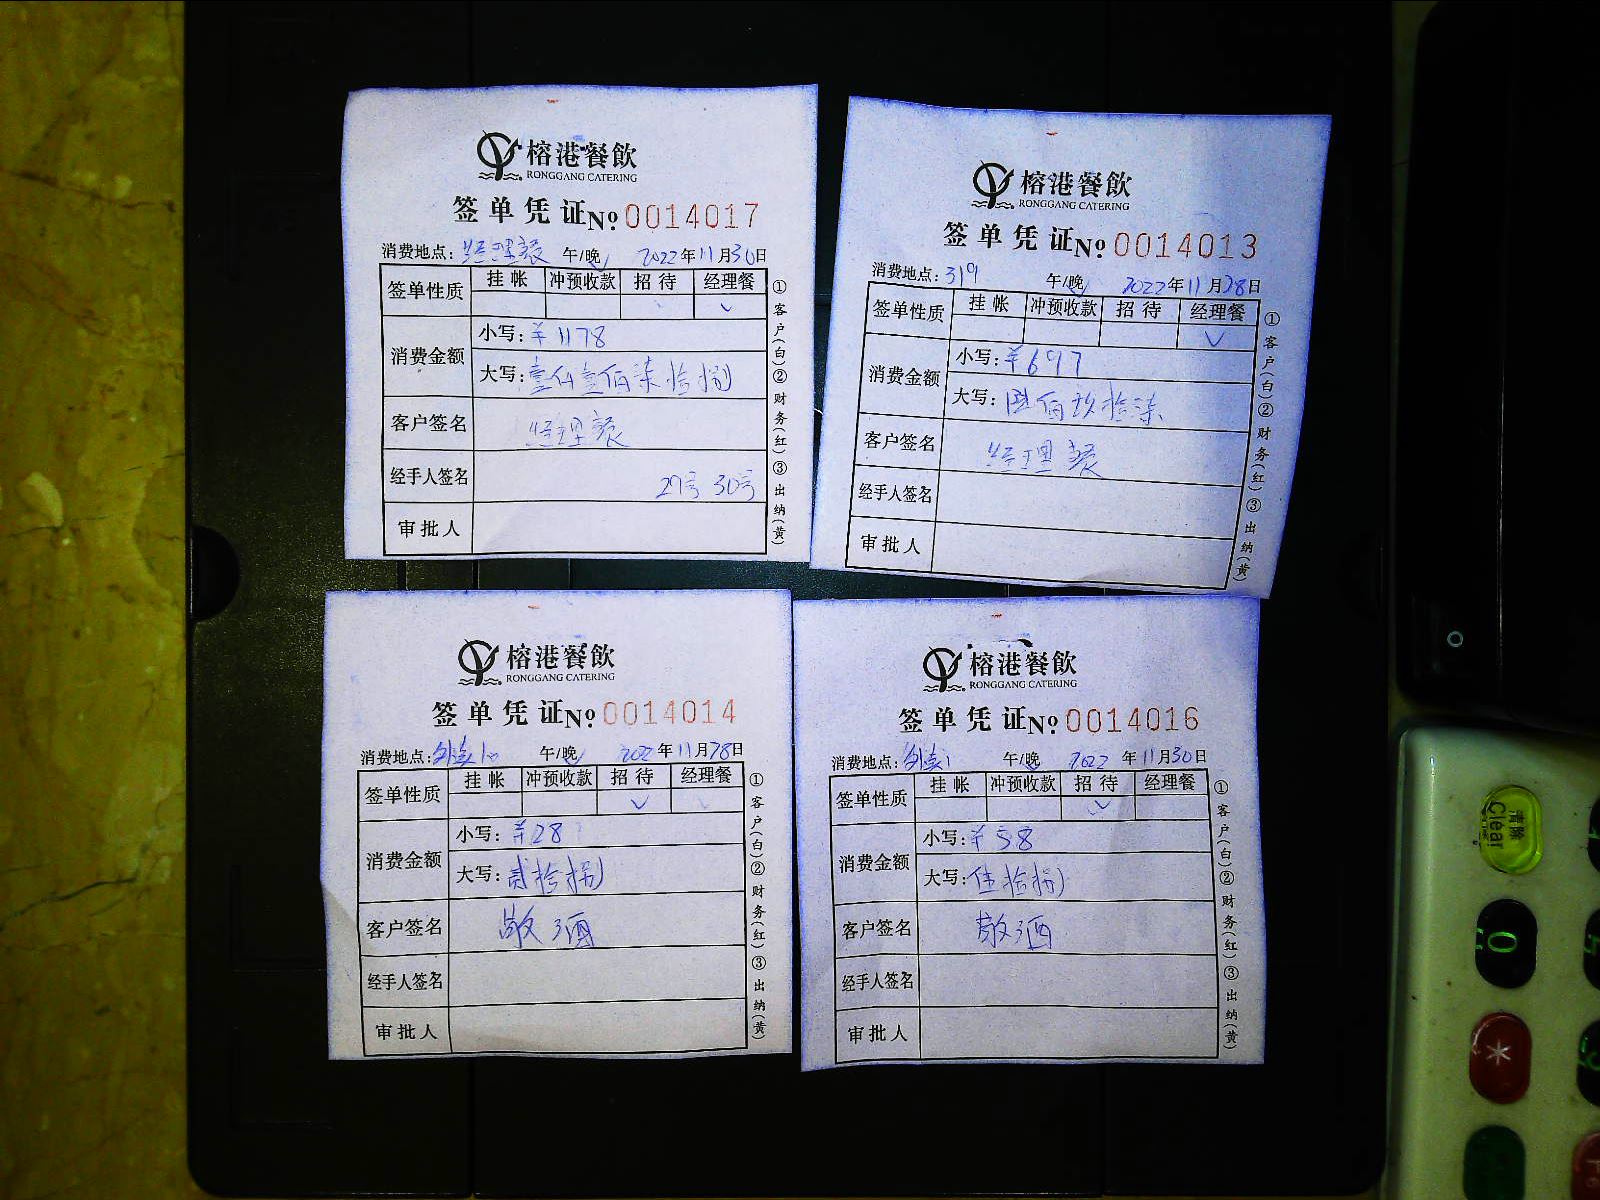 榕港餐飲
RONGGANG CATERING
签单凭证 No 0014017
消费地点: 经理餐 午/晚 2022年11月30日
签单性质 挂帐 冲预收款 招待 经理餐
✓
消费金额 小写: ¥1178
大写: 壹仟壹佰柒拾捌
客户签名 经理餐
经手人签名 29号 30号
审批人
①客户(白)②财务(红)③出纳(黄)
榕港餐飲
RONGGANG CATERING
签单凭证 No 0014013
消费地点: 319 午/晚 2022年11月28日
签单性质 挂帐 冲预收款 招待 经理餐
✓
消费金额 小写: ¥697
大写: 陆佰玖拾柒
客户签名 经理餐
经手人签名
审批人
①客户(白)②财务(红)③出纳(黄)
榕港餐飲
RONGGANG CATERING
签单凭证 No 0014014
消费地点: 午/晚 2022年11月28日
签单性质 挂帐 冲预收款 招待 经理餐
✓
消费金额 小写: ¥28
大写: 贰拾捌
客户签名 敬酒
经手人签名
审批人
①客户(白)②财务(红)③出纳(黄)
榕港餐飲
RONGGANG CATERING
签单凭证 No 0014016
消费地点: 午/晚 2022年11月30日
签单性质 挂帐 冲预收款 招待 经理餐
✓
消费金额 小写: ¥58
大写: 伍拾捌
客户签名 敬酒
经手人签名
审批人
①客户(白)②财务(红)③出纳(黄)
清除
Clear
0
*